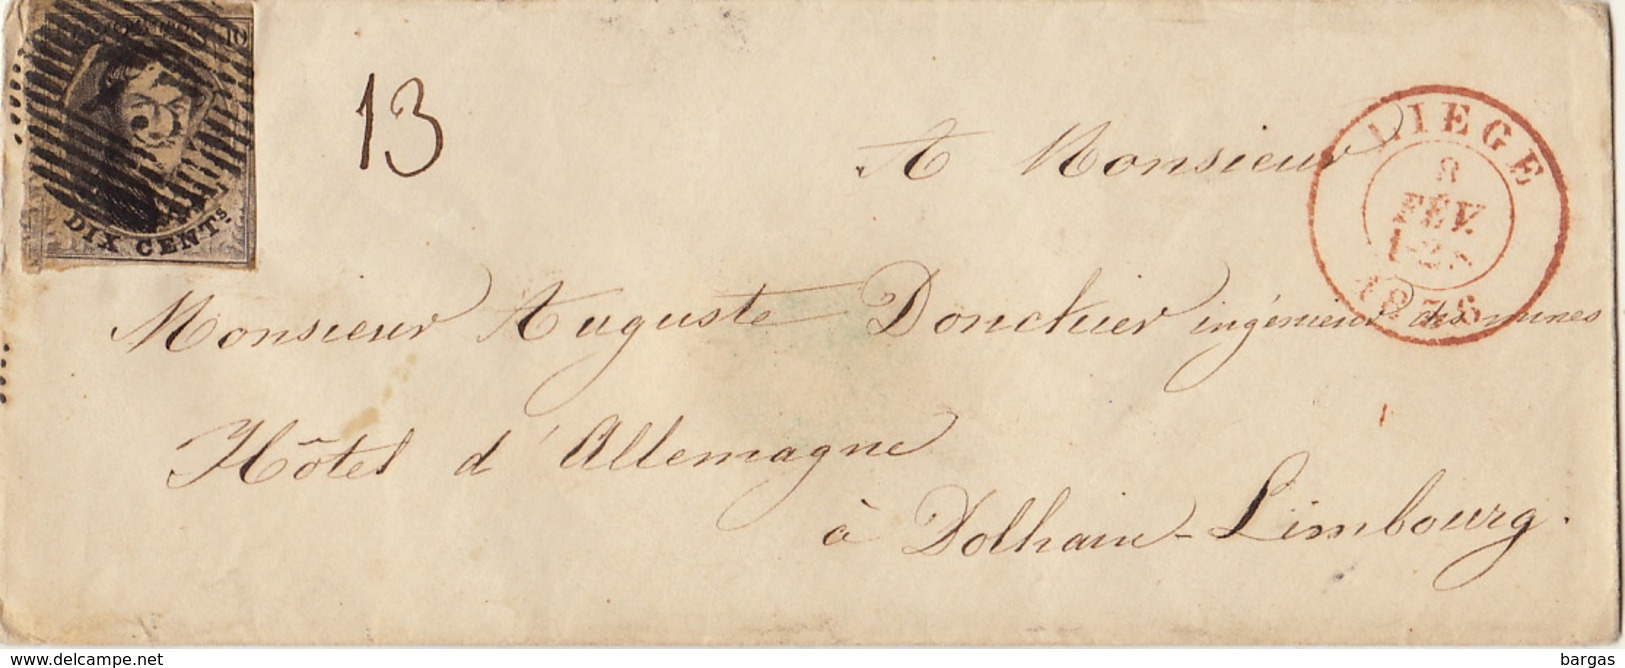 10
DIX CENTS.
13
LIEGE
8
FÉV.
A Monsieur
Monsieur Auguste Donckier ingénieur des mines
Hôtel d'Allemagne
à Dolhain-Limbourg.
www.delcampe.net
bargas